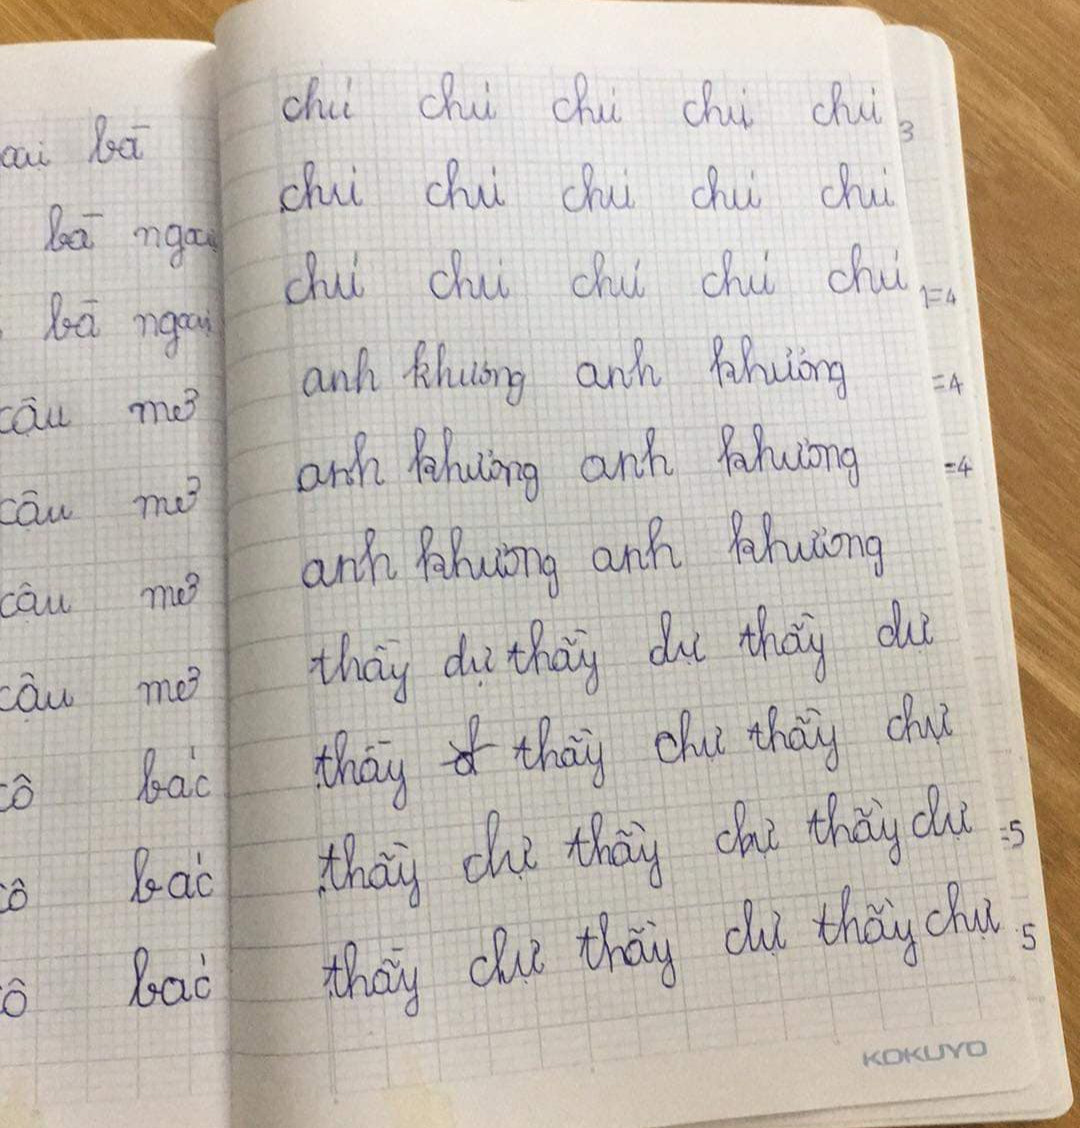 bà
bà ngoại
bà ngoại
cậu mợ
cậu mợ
cậu mợ
cậu mợ
cô bác
cô bác
cô bác
chú chú chú chú chú 3
chú chú chú chú chú
chú chú chú chú chú 1=4
anh khương anh khương =4
anh khương anh khương =4
anh khương anh khương
thầy dự thầy dự thầy dự
thầy thầy chự thầy chự
thầy chự thầy chự thầy chự =5
thầy chự thầy chự thầy chự 5
KOKUYO